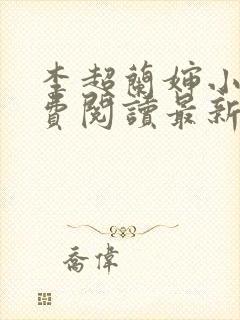 李超蘭婶小
費閱讀最新
喬偉